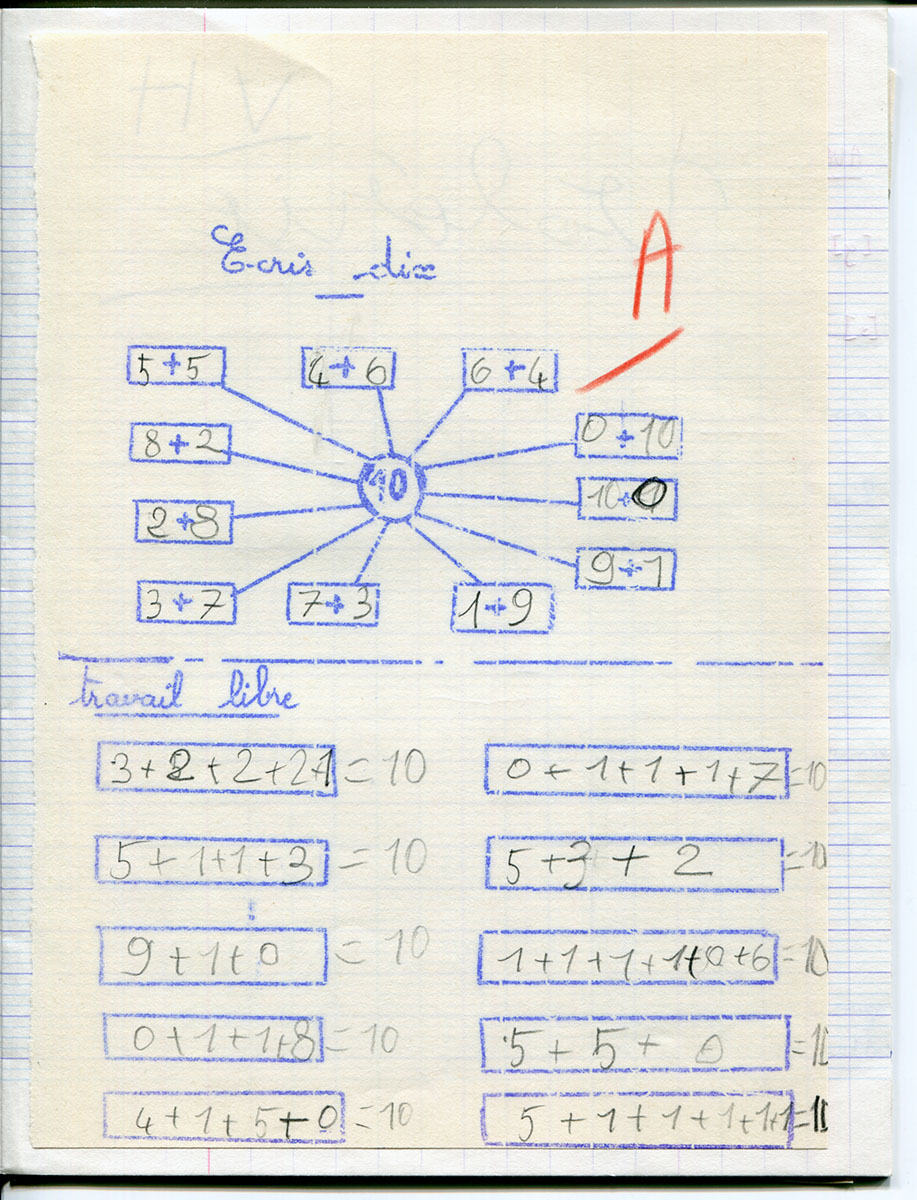 Ecris dix
A
5+5 4+6 6+4
8+2 0+10
10
2+8 10+0
9+1
3+7 7+3 1+9
travail libre
3+2+2+2+1=10 0+1+1+1+7=10
5+1+1+3=10 5+3+2=10
9+1+0=10 1+1+1+1+0+6=10
0+1+1+8=10 5+5+0=10
4+1+5+0=10 5+1+1+1+1+1=10